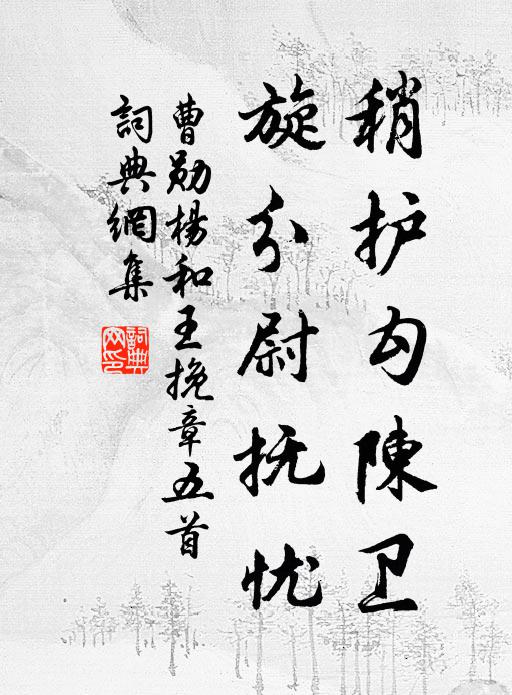 稍护勾陳卫
旋分尉抚忧
曹勋楊和王挽章五首
詞典網集
詞典网印